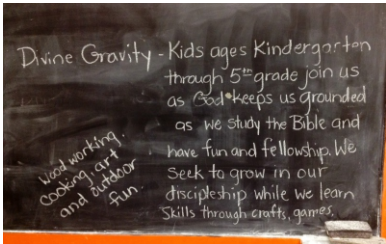 Divine Gravity - Kids ages Kindergarten
through 5th grade join us
as God keeps us grounded
as we study the Bible and
have fun and fellowship. We
seek to grow in our
discipleship while we learn
skills through crafts, games.
Wood working,
cooking, art
and outdoor
fun.